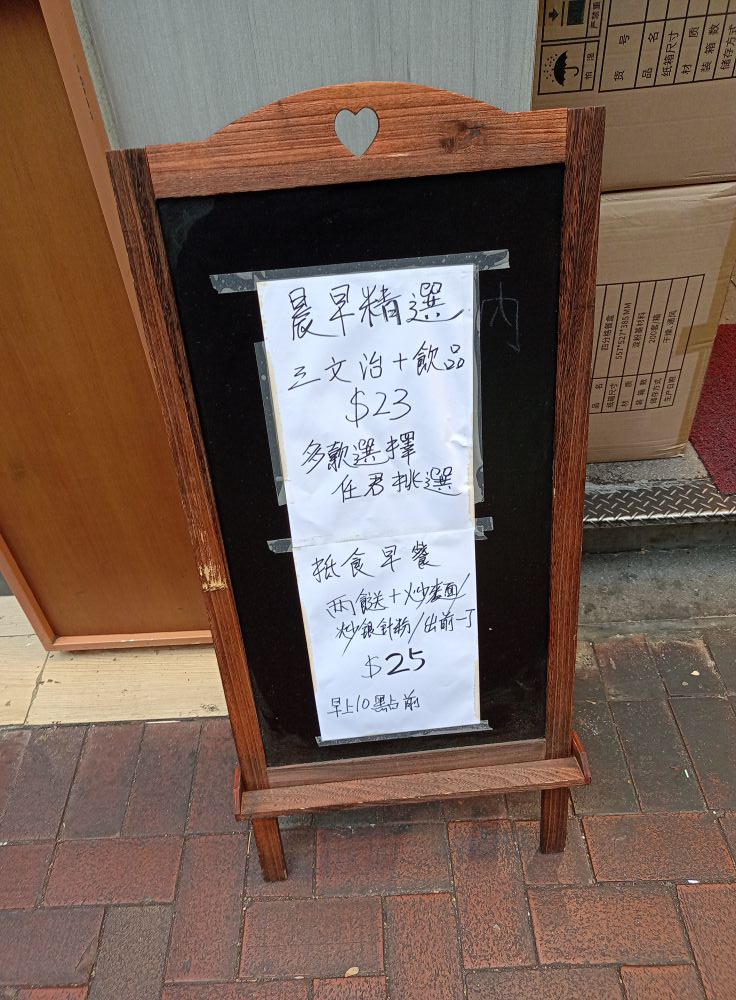 晨早精選
三文治+飲品
$23
多款選擇
任君挑選
抵食早餐
两餸+炒麵/
炒銀針粉/出前一丁
$25
早上10點前
内
怕湿
严禁重
货号
品名
纸箱尺寸
材质
装箱数
储存方式
品名 四分格餐盒
纸箱尺寸 557*527*385MM
材质 淀粉基材料
装箱数 200套/箱
储存方式 干燥,通风
生产日期